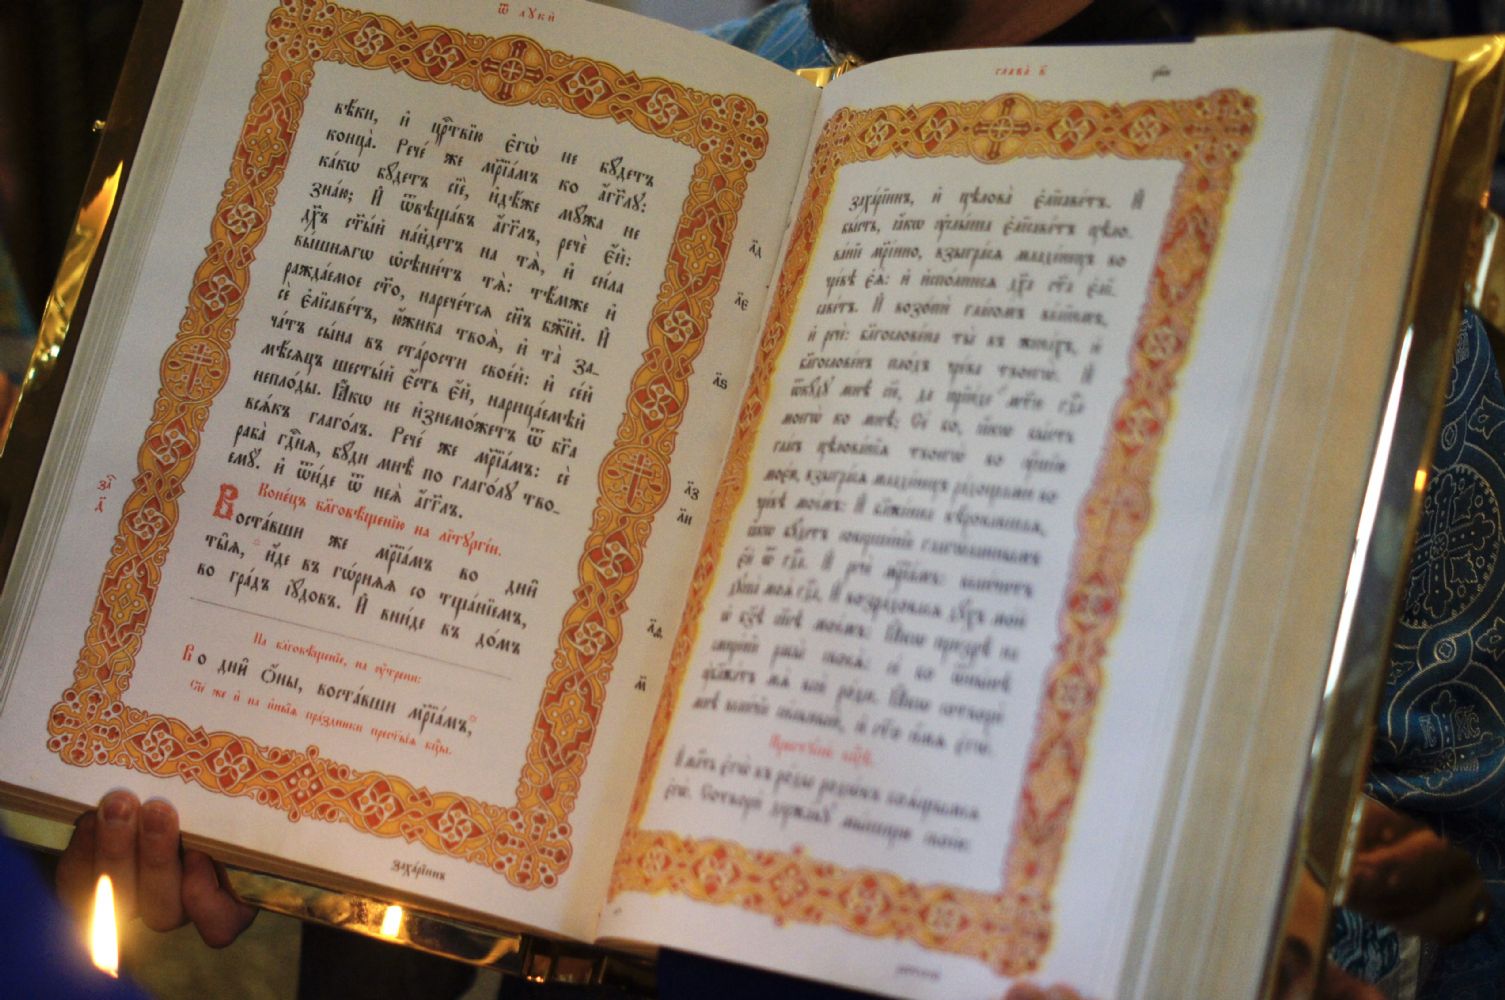 Ѿ лꙋкѝ
вѣ́ки, и҆ црⷭ҇твїю є҆гѡ̀ не бꙋ́детъ
конца̀. Рече́ же мрⷭ҇їа́мъ ко а҆́гг҃лꙋ:
ка́кѡ бꙋ́детъ сїѐ, и҆дѣ́же мꙋ́жа не
зна́ю; И҆ ѿвѣща́въ а҆́гг҃лъ, речѐ є҆́й:
дх҃ъ ст҃ы́й на́йдетъ на тѧ̀, и҆ си́ла
вы́шнѧгѡ ѡ҆сѣни́тъ тѧ̀: тѣ́мже и҆
ражда́емое ст҃о, нарече́тсѧ сн҃ъ бж҃їй. И҆
сѐ є҆лїсаве́тъ, ю҆́жика твоѧ̀, и҆ та̀ за-
ча́тъ сы́на въ ста́рости свое́й: и҆ се́й
мѣ́сѧцъ шесты́й є҆́сть є҆́й, нарица́емѣй
непло́ды. Ꙗ҆́кѡ не и҆знемо́жетъ ѿ бг҃а
всѧ́къ глаго́лъ. Рече́ же мрⷭ҇їа́мъ: сѐ
раба̀ гдⷭ҇нѧ, бꙋ́ди мнѣ̀ по глаго́лꙋ тво-
емꙋ̀. и҆ ѿи́де ѿ неѧ̀ а҆́гг҃лъ.
Коне́цъ бл҃говѣ́щенїю на лїтꙋргі́и.
Воста́вши же мрⷭ҇їа́мъ во дни̑
ты̑ѧ, и҆́де въ гѡ́рнѧѧ со тща́нїемъ,
во гра́дъ і҆ꙋ́довъ. И҆ вни́де въ до́мъ
На бл҃говѣ́щенїе, на ᲂу҆́трени:
Во дни̑ ѻ҆́ны, воста́вши мрⷭ҇їа́мъ,
Сїе́ же и҆ на и҆ны̑ѧ пра́здники прест҃ы́ѧ бц҃ы.
заха́рїинъ
за҃
д҃
л҃д
л҃е
л҃ѕ
л҃з
л҃и
л҃ѳ
м҃
глава̀ а҃
заха́рїинъ, и҆ цѣлова̀ є҆лїсаве́тъ. И҆
бы́сть, ꙗ҆́кѡ ᲂу҆слы́ша є҆лїсаве́тъ цѣло-
ва́нїе мр҃і́ино, взыгра́сѧ младе́нецъ во
чре́вѣ є҆ѧ̀: и҆ и҆спо́лнисѧ дх҃а ст҃а є҆лї-
саве́тъ. И҆ возопѝ гла́сомъ ве́лїимъ,
и҆ речѐ: блг҃ослове́на ты̀ въ жена́хъ, и҆
блг҃ослове́нъ пло́дъ чре́ва твоегѡ̀. И҆
ѿкꙋ́дꙋ мнѣ̀ сїѐ, да прїи́де мт҃и гдⷭ҇а
моегѡ̀ ко мнѣ̀; Се́ бо, ꙗ҆́кѡ бы́сть
гла́съ цѣлова́нїѧ твоегѡ̀ во ᲂу҆́шїю
мое́ю, взыгра́сѧ младе́нецъ ра́дощами во
чре́вѣ мое́мъ: И҆ бл҃же́нна вѣ́ровавшаѧ,
ꙗ҆́кѡ бꙋ́детъ соверше́нїе глаго́ланнымъ
є҆́й ѿ гдⷭ҇а. И҆ речѐ мрⷭ҇їа́мъ: вели́читъ
дꙋша̀ моѧ̀ гдⷭ҇а, И҆ возра́довасѧ дꙋ́хъ мо́й
ѡ҆ бз҃ѣ сп҃сѣ мое́мъ: Ꙗ҆́кѡ призрѣ̀ на
смире́нїе рабы̀ своеѧ̀: се́ бо ѿны́нѣ
ᲂу҆блажа́тъ мѧ̀ всѝ ро́ди. Ꙗ҆́кѡ сотворѝ
мнѣ̀ вели́чїе си́льный, и҆ ст҃о и҆́мѧ є҆гѡ̀.
Прест҃ѣ́й бц҃ѣ.
И҆ ми́лость є҆гѡ̀ въ ро́ды родѡ́въ боѧ́щымсѧ
є҆гѡ̀. Сотворѝ держа́вꙋ мы́шцею свое́ю: